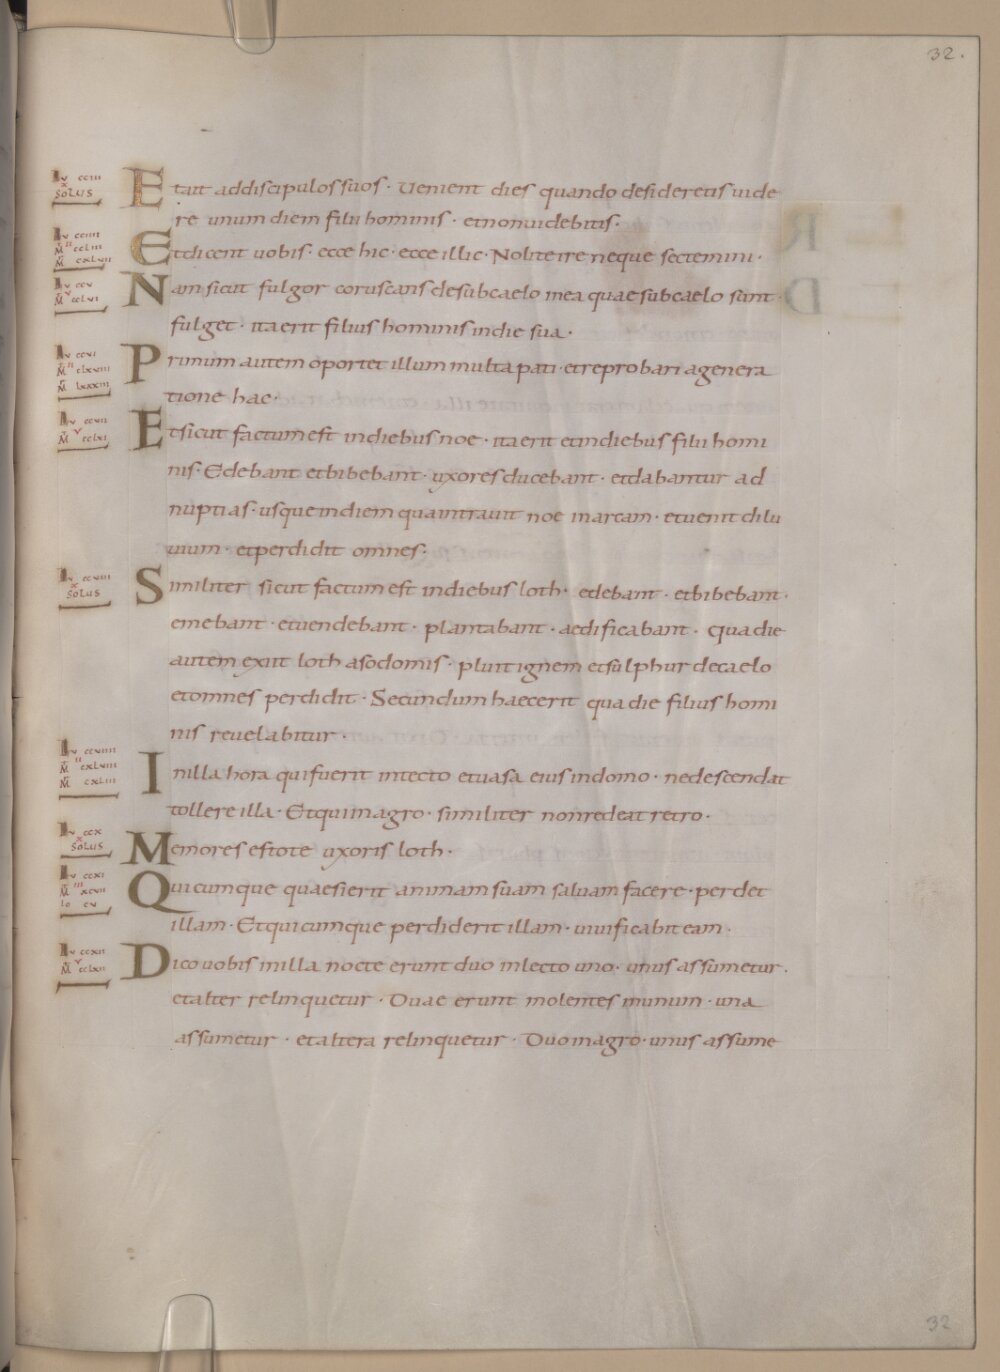 32.
Lu cciii
x
SOLUS
E tait addiscipulos suos · Uenient dies quando desideretis uide
re unum diem filii hominis · etnonuidebitis ·
Lu cciiii
M II cclui
M cxluii
E tdicent uobis · ecce hic · ecce illic · Nolite ire neque sectemini ·
Lu ccv
M v cclvi
N am sicut fulgor coruscans desubcaelo inea quae subcaelo sunt
fulget · itaerit filius hominis indie sua ·
Lu ccvi
M II clxviii
M lxxxiii
P rimum autem oportet illum multa pati · etreprobari agenera
tione hac ·
Lu ccvii
M v cclxi
E tsicut factum est indiebus noe · itaerit etindiebus filii homi
nis · Edebant etbibebant · uxores ducebant · etdabantur ad
nuptias · usque indiem qua intrauit noe inarcam · etuenit dilu
uium · etperdidit omnes ·
Lu ccviii
x
SOLUS
S imiliter sicut factum est indiebus loth · edebant · etbibebant ·
emebant · etuendebant · plantabant · aedificabant · Qua die
autem exiit loth asodomis · pluit ignem etsulphur decaelo
etomnes perdidit · Secundum haecerit qua die filius homi
nis reuelabitur ·
Lu ccviiii
M II cxlviii
M cxliii
I nilla hora qui fuerit intecto etuasa eius indomo · nedescendat
tollere illa · Etqui inagro · similiter nonredeat retro ·
Lu ccx
x
SOLUS
M emores estote uxoris loth ·
Lu ccxi
M III xcvii
Io cv
Q uicumque quaesierit animam suam saluam facere · perdet
illam · Etquicumque perdiderit illam · uiuificabit eam ·
Lu ccxii
M v cclxii
D ico uobis inilla nocte erunt duo inlecto uno · unus assumetur ·
etalter relinquetur · Duae erunt molentes inunum · una
assumetur · etaltera relinquetur · Duo inagro · unus assume
32